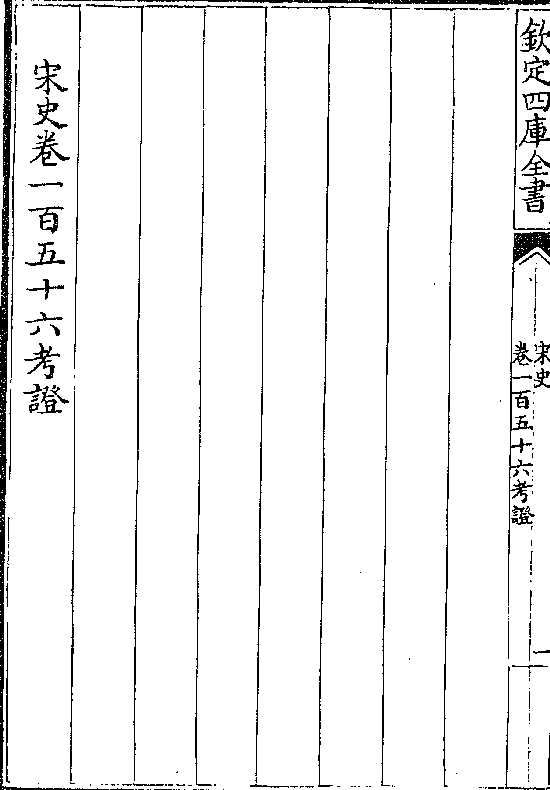 欽定四庫全書
宋史
卷一百五十六考證
一
宋史卷一百五十六考證